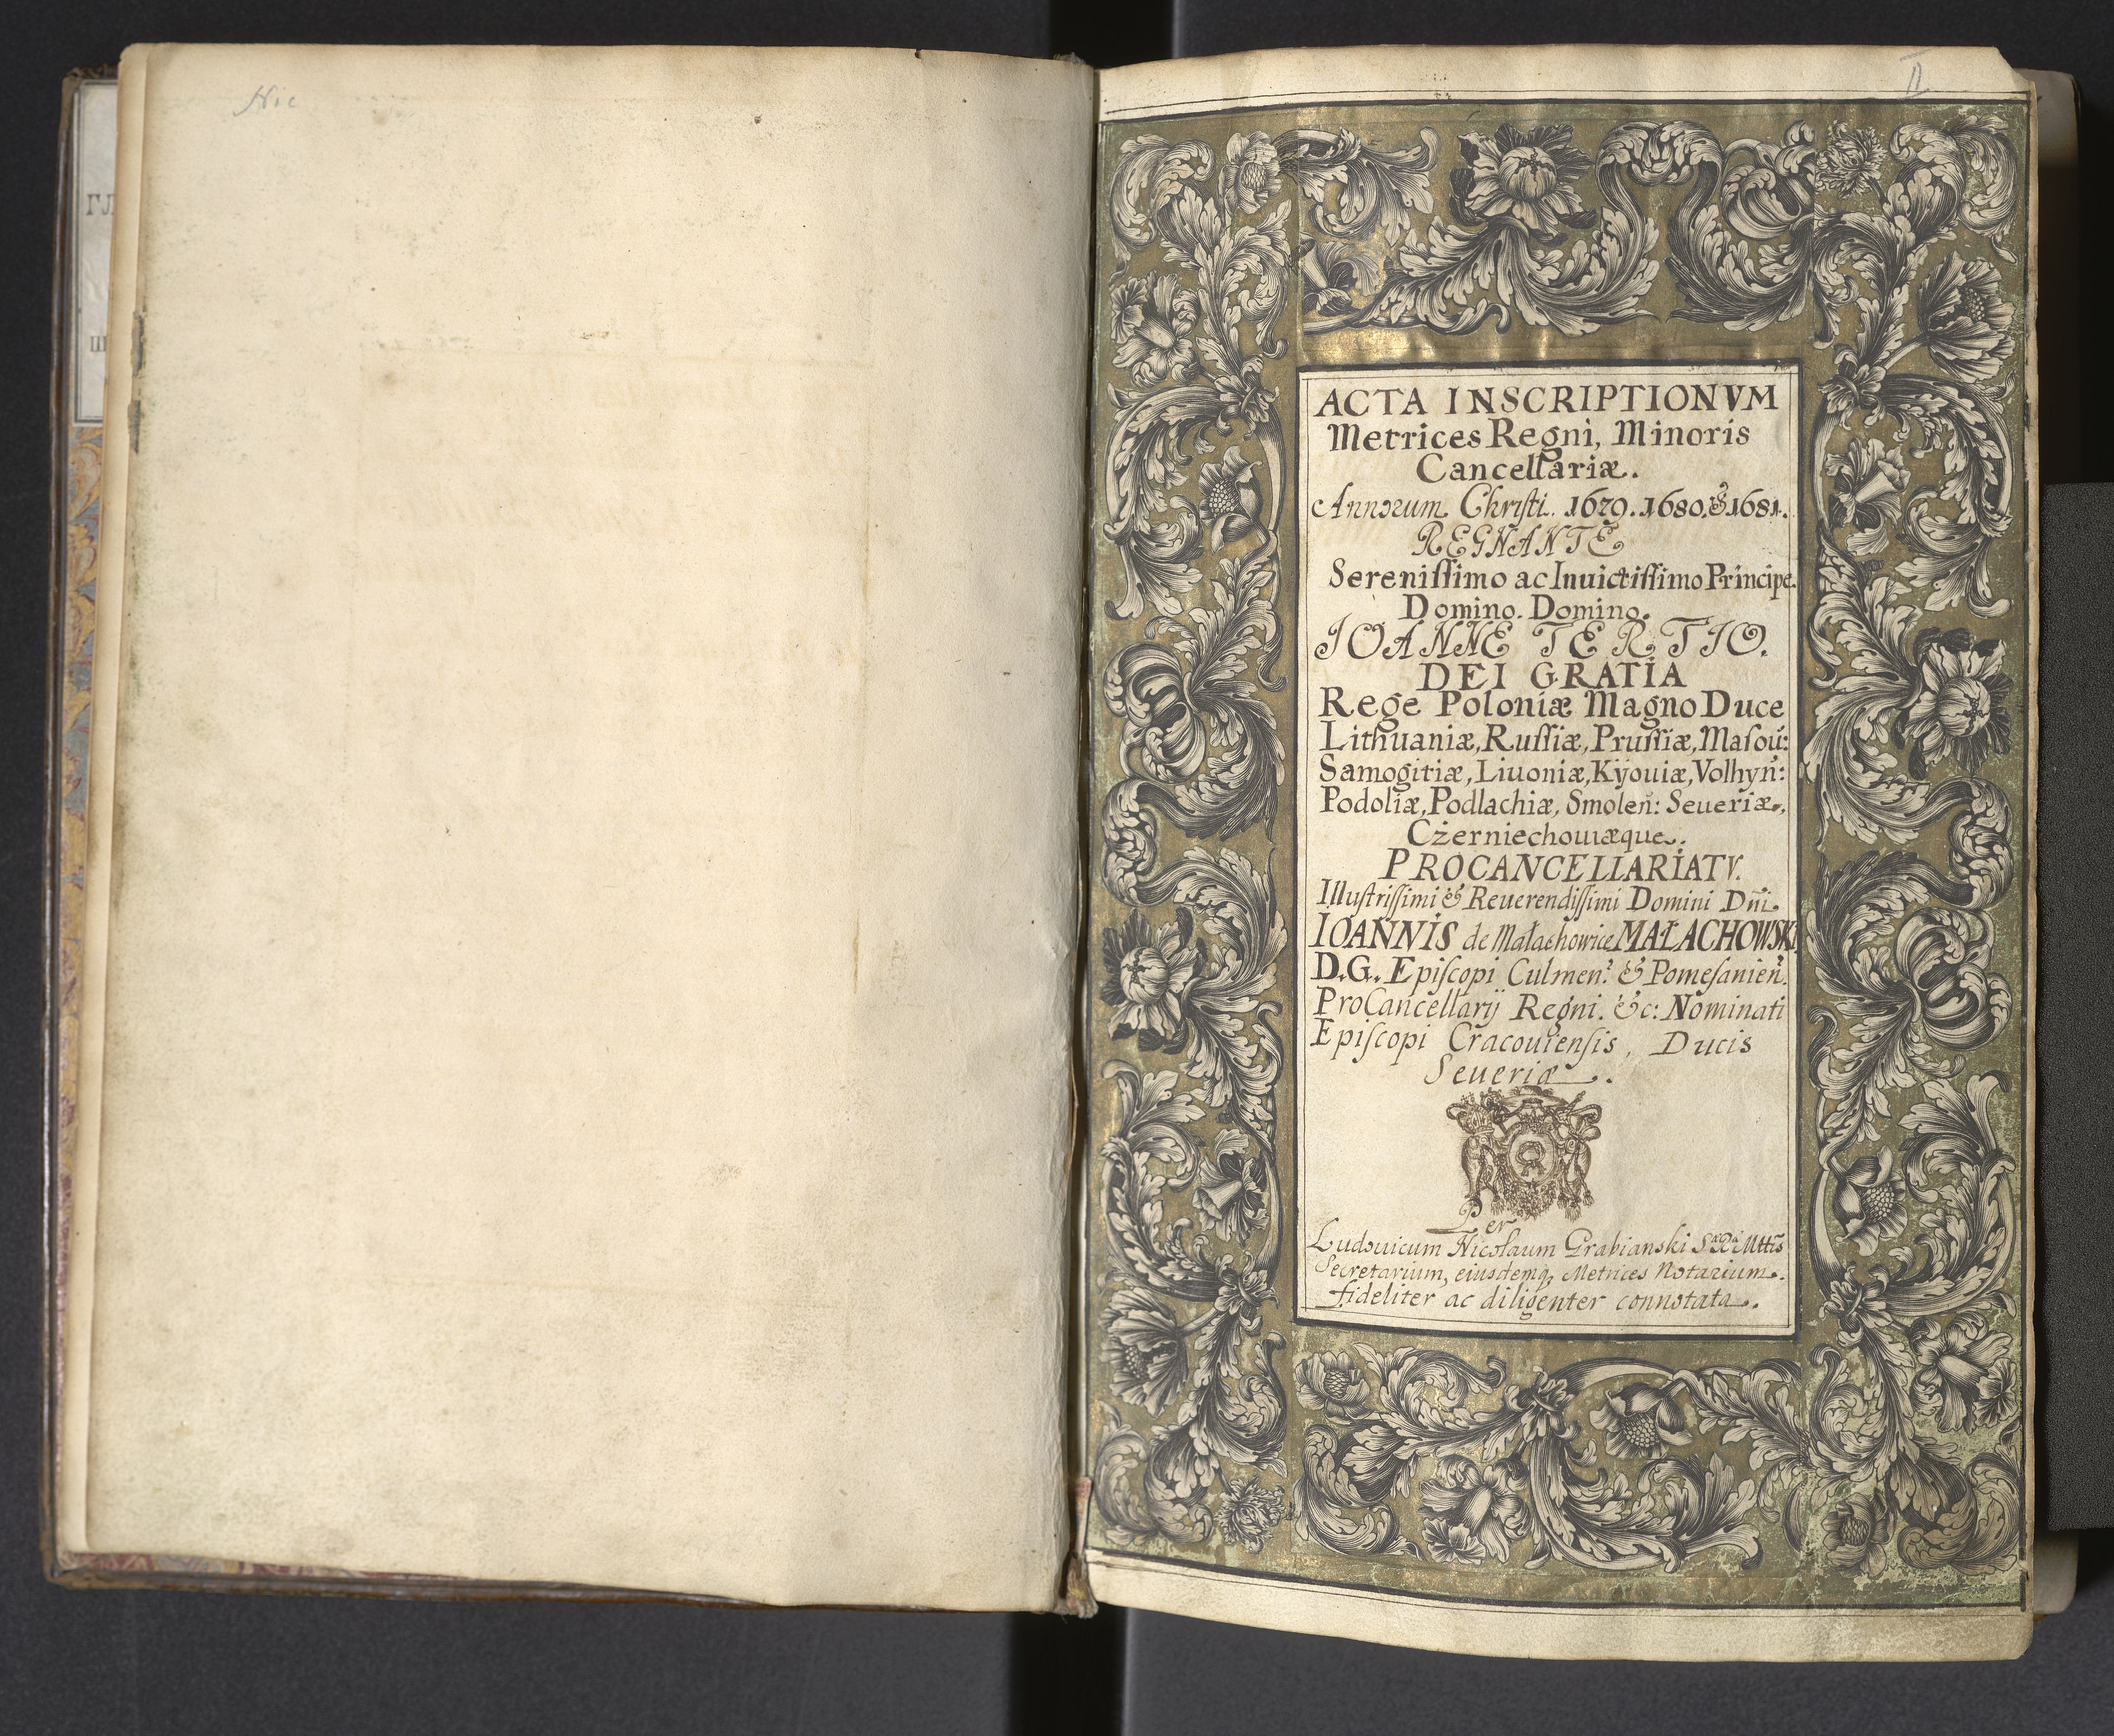 Nic
ГЛ
Ш
II
ACTA INSCRIPTIONVM
Metrices Regni, Minoris
Cancellariæ.
Annorum Christi. 1679. 1680. & 1681.
REGNANTE
Sereniſſimo ac Inuictiſſimo Principe
Domino. Domino.
IOANNE TERTIO.
DEI GRATIA
Rege Poloniæ Magno Duce
Lithuaniæ, Ruſſiæ, Pruſſiæ, Maſou:
Samogitiæ, Liuoniæ, Kÿouiæ, Volhyń:
Podoliæ, Podlachiæ, Smoleń: Seueriæ,
Czerniechouiæque.
PROCANCELLARIATV.
Illuſtriſſimi & Reuerendiſſimi Domini Dñi
IOANNIS de Małachowice MAŁACHOWSKI
D.G. Epiſcopi Culmen: & Pomeſanień.
ProCancellarij Regni. &c: Nominati
Epiſcopi Cracouienſis, Ducis
Seueriæ.
Per
Ludouicum Nicolaum Grabianski S R Mttis
Secretarium, eiusdemq, Metrices Notarium.
fideliter ac diligenter connotata.